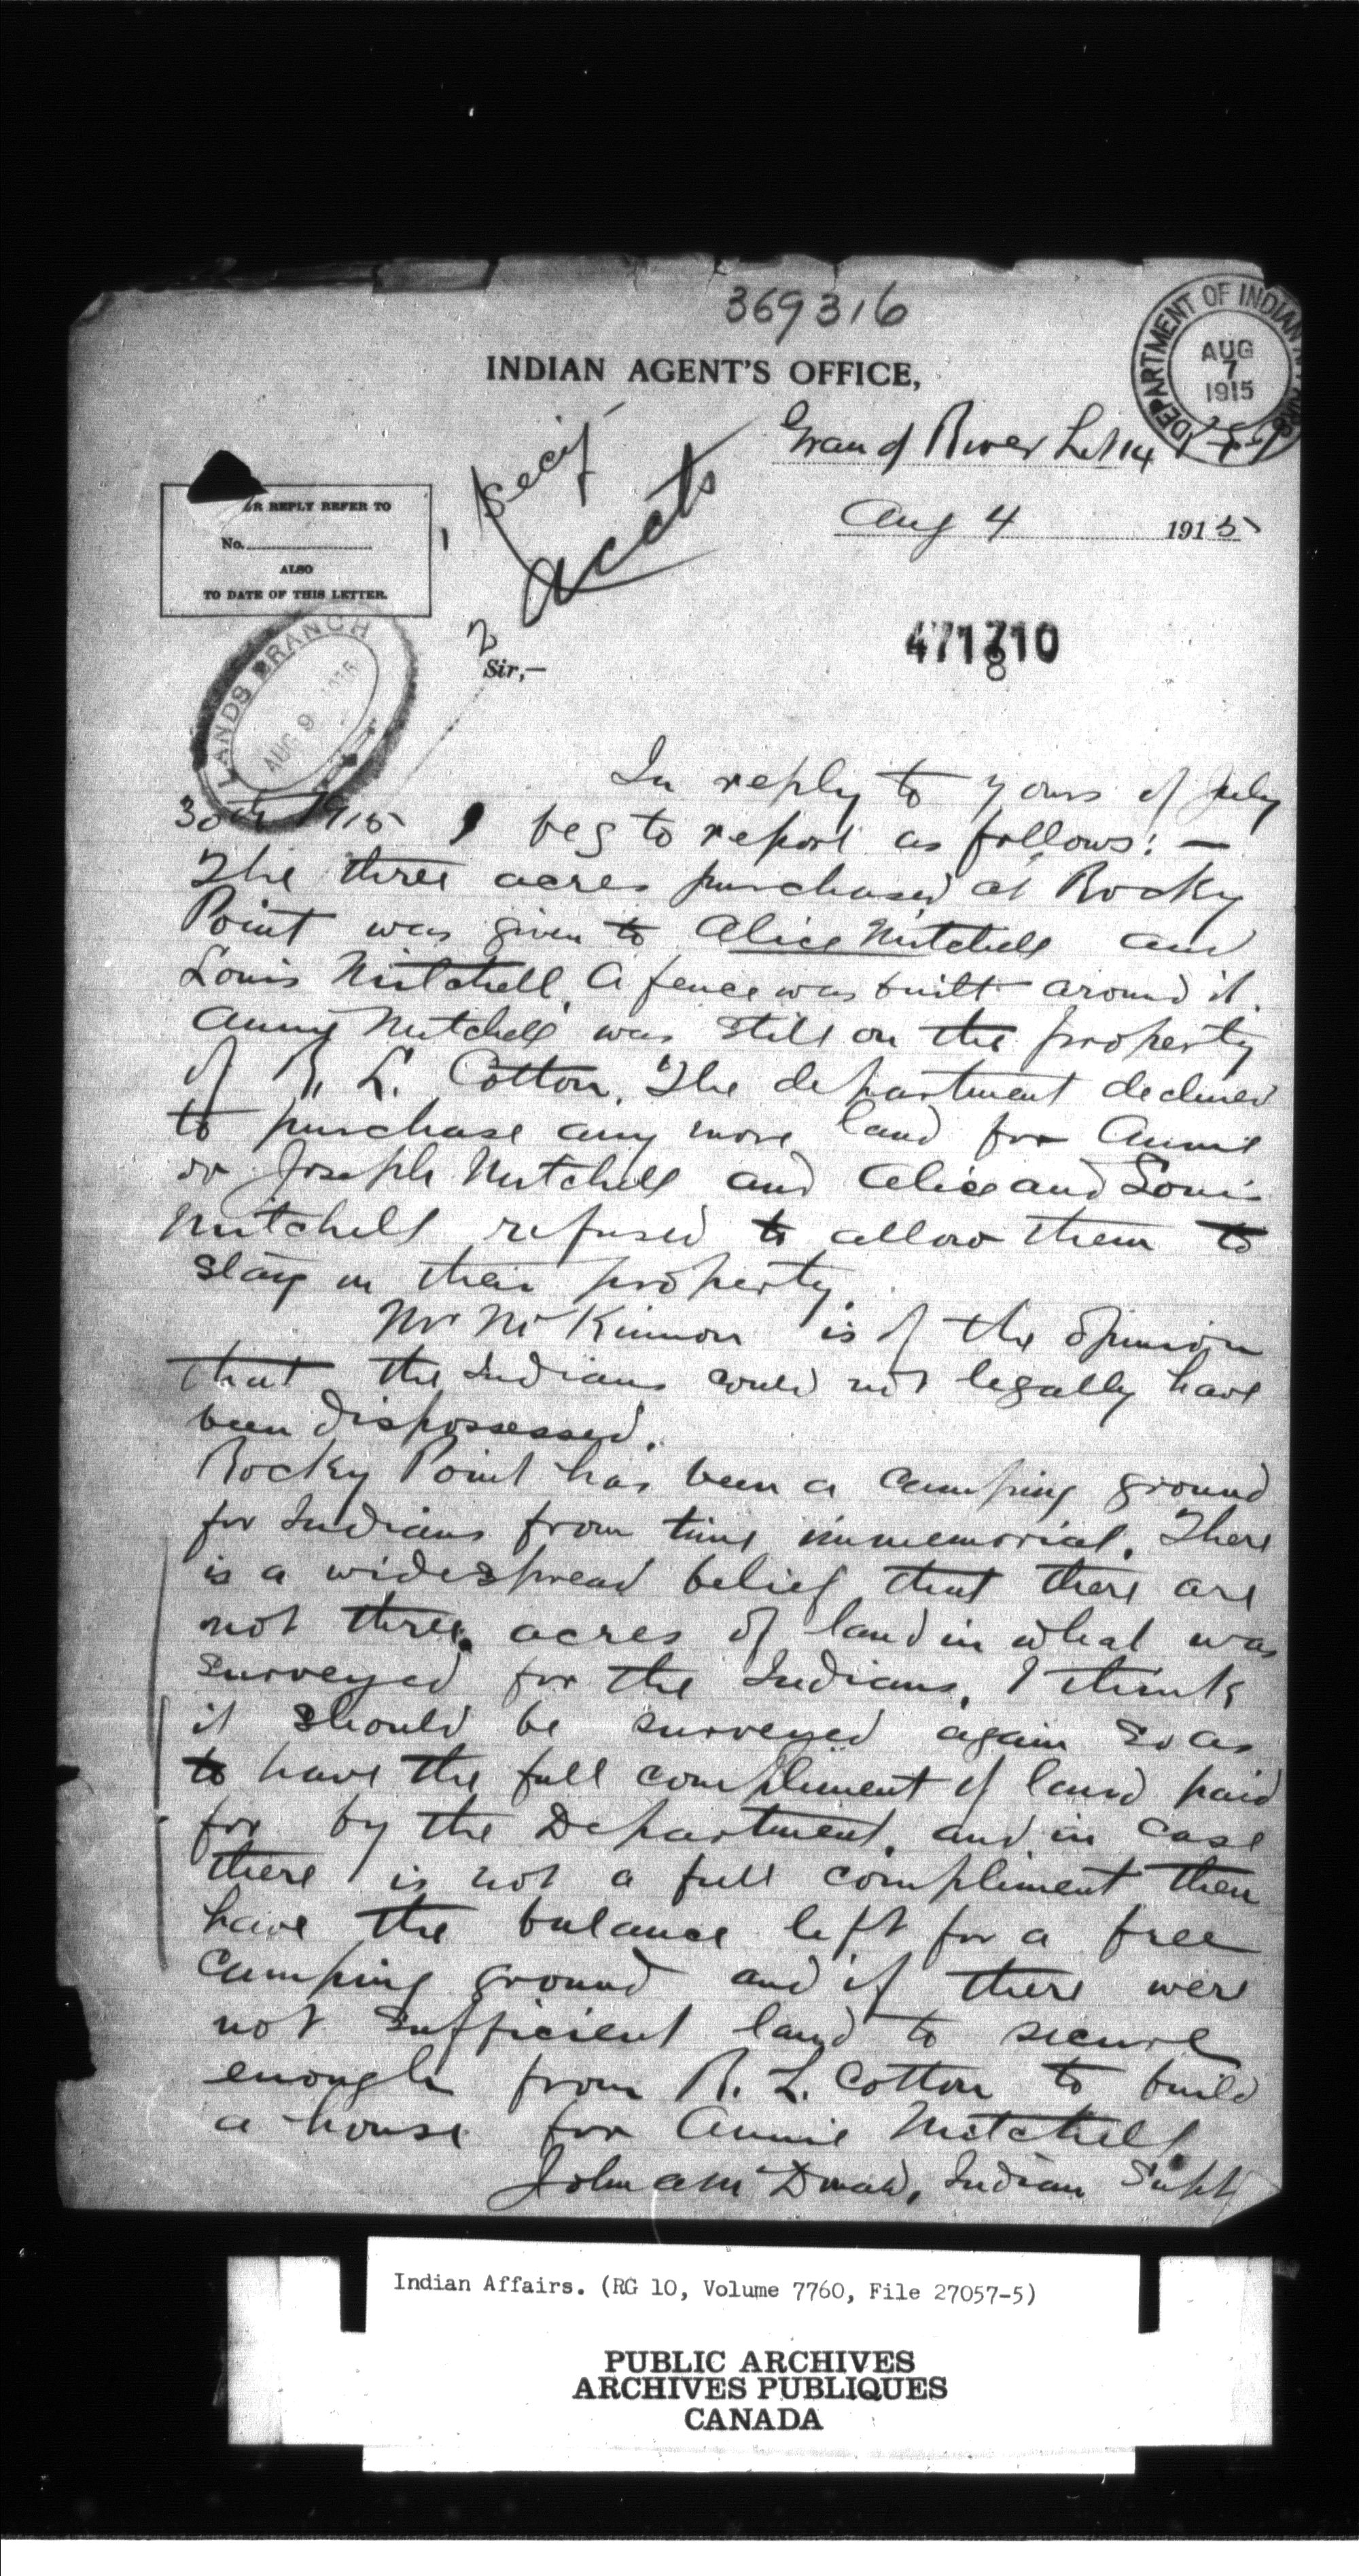 369316
INDIAN AGENT'S OFFICE,
DEPARTMENT OF INDIAN AFFAIRS
AUG
7
1915
Grand River Lot 14
Aug 4 1915
OR REPLY REFER TO
No.
ALSO
TO DATE OF THIS LETTER.
1
Accts
2
471710
8
LANDS BRANCH
AUG 9 1915
Sir,—
In reply to yours of July
30th 1915 I beg to report as follows: —
The three acres purchased at Rocky
Point was given to Alice Mitchell and
Louis Mitchell. A fence was built around it.
Anny Mitchell was still on the property
of R. L. Cotton. The department declined
to purchase any more land for Annie
or Joseph Mitchell and Alice and Louis
Mitchell refused to allow them to
stay on their property.
Mr McKinnon is of the opinion
that the Indians could not legally have
been dispossessed.
Rocky Point has been a camping ground
for Indians from time immemorial. There
is a widespread belief that there are
not three acres of land in what was
surveyed for the Indians. I think
it should be surveyed again so as
to have the full compliment of land paid
for by the Department, and in case
there is not a full compliment then
have the balance left for a free
camping ground and if there were
not sufficient land to secure
enough from R. L. Cotton to build
a house for Annie Mitchell.
John A McDonald, Indian Supt
Indian Affairs. (RG 10, Volume 7760, File 27057-5)
PUBLIC ARCHIVES
ARCHIVES PUBLIQUES
CANADA